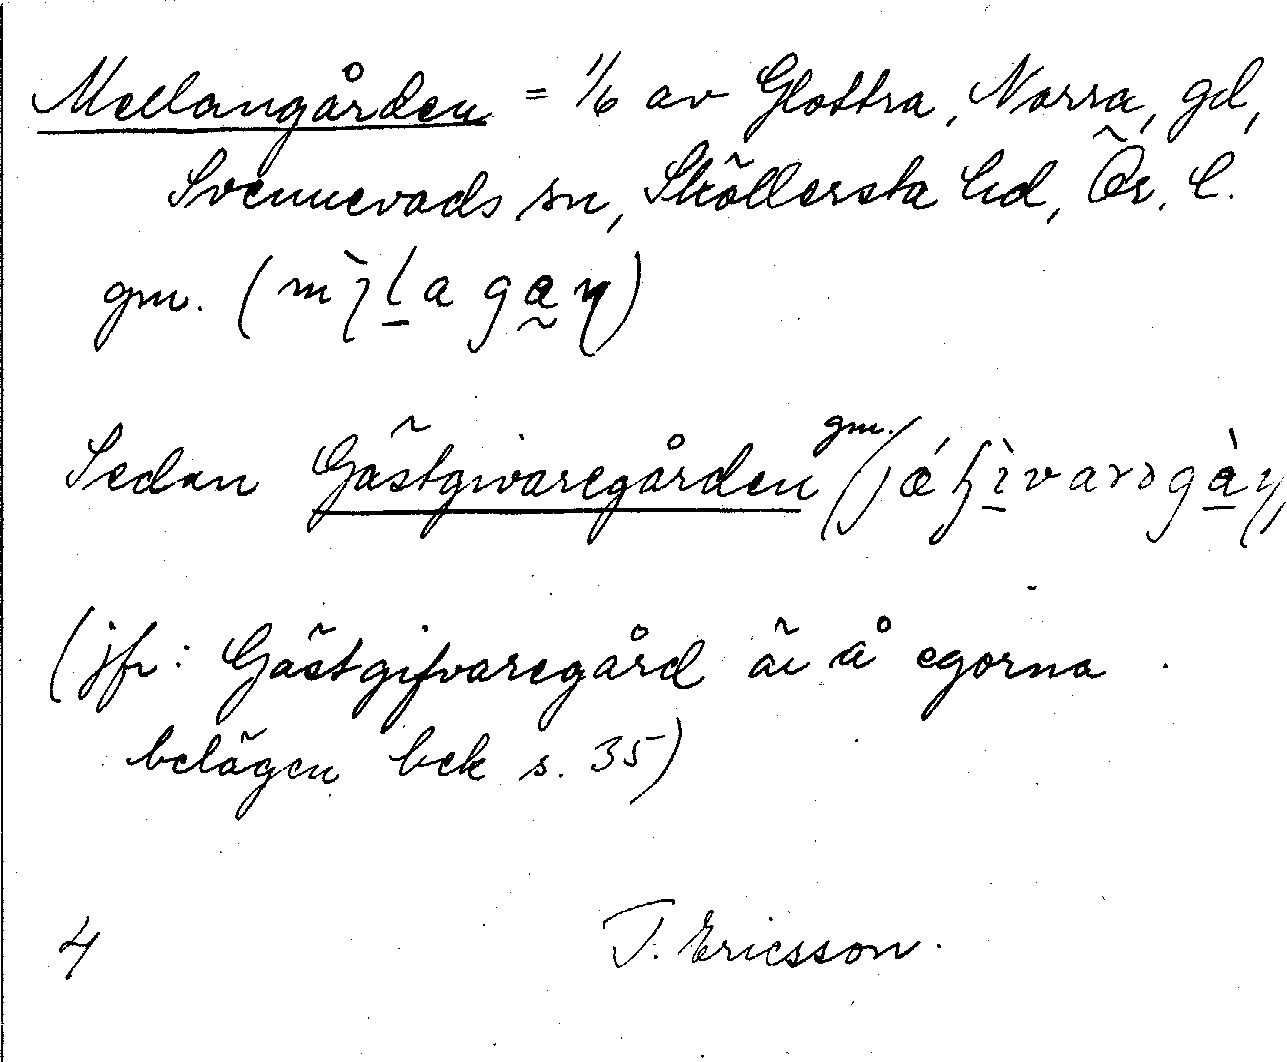 Mellangården = 1/6 av Glottra, Norra, gd,
Svennevads sn, Sköllersta hd, Ör. l.
gm.
Sedan Gästgivaregården gm.
(jfr: Gästgifvaregård är å egorna
belägen bek s. 35)
4 T. Ericsson.